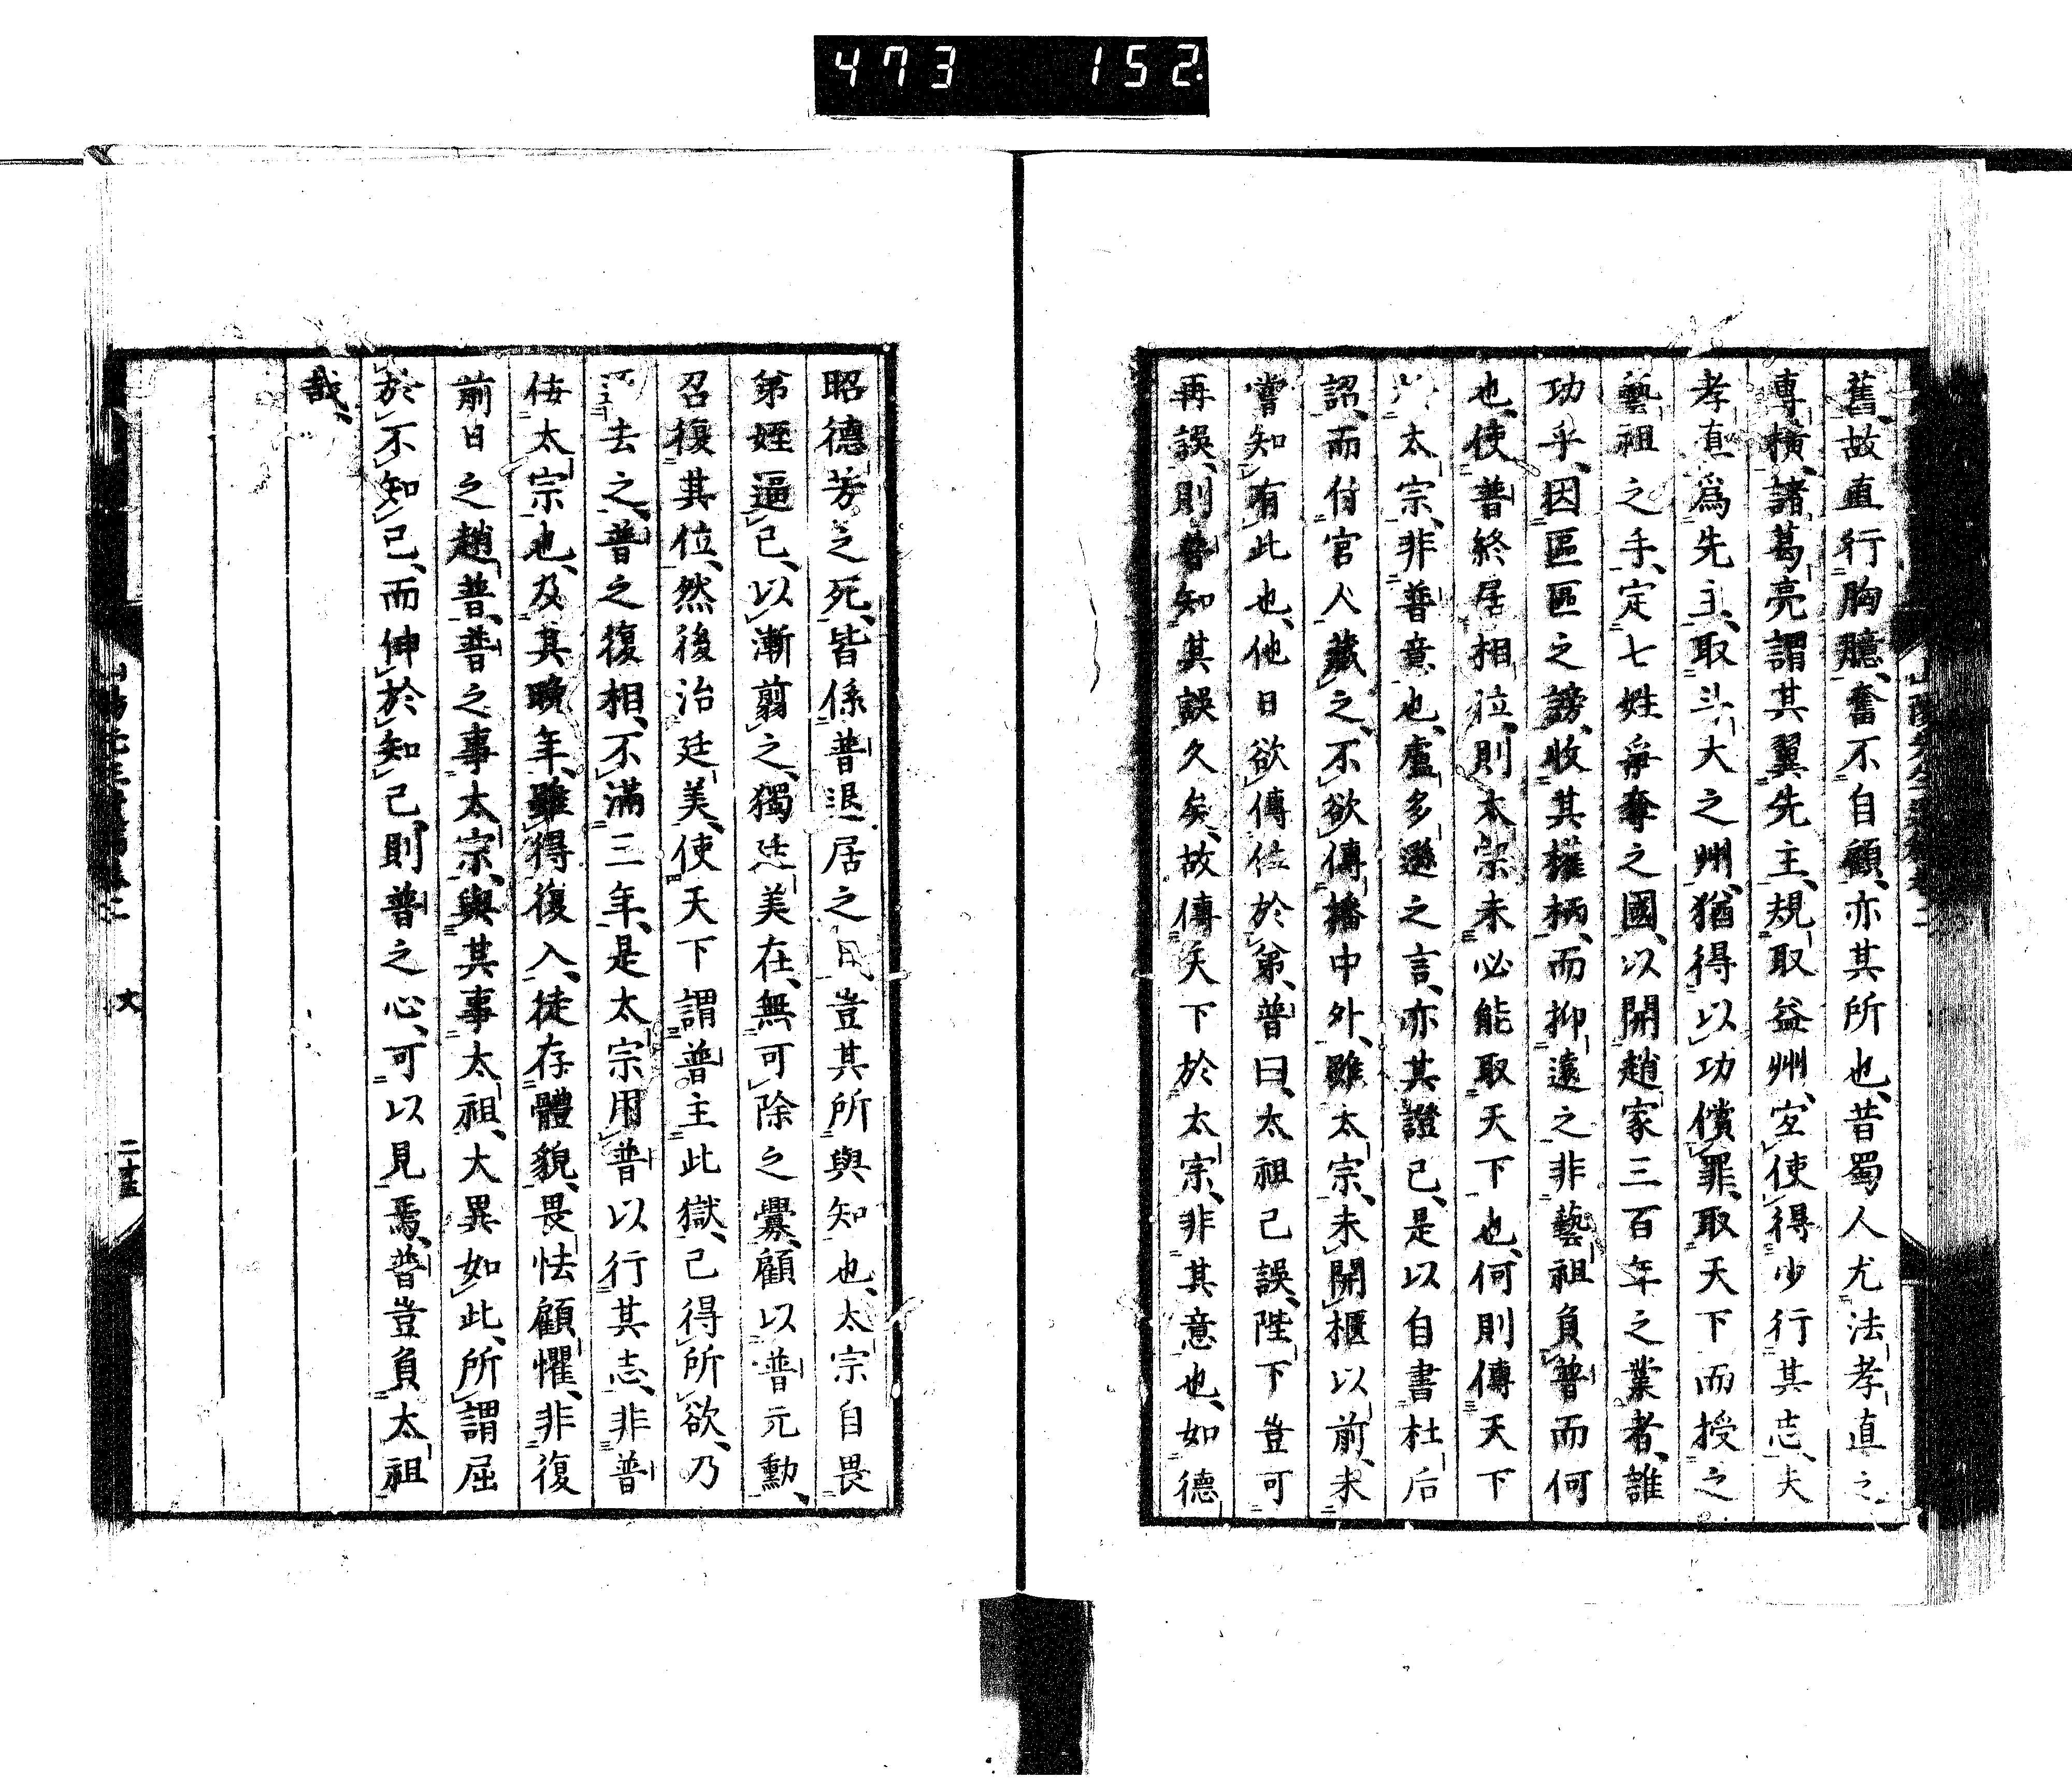 473 152
舊、故直行胸臆、奮不自顧、亦其所也、昔蜀人尤法孝直之
專橫、諸葛亮謂其翼先主、規取益州、定使得少行其志、夫
孝直爲先主、取斗大之州、猶得以功償罪、取天下而授之
藝祖之手、定七姓爭奪之國、以開趙家三百年之業者、誰
功乎、因區區之謗、收其權柄、而抑遠之、非藝祖負普而何
也、使普終居相位、則太宗未必能取天下也、何則傳天下
太宗、非普意也、盧多遜之言、亦其證已、是以自書杜后
詔、而付官人藏之、不欲傳播中外、雖太宗、未開櫃以前、未
嘗知有此也、他日欲傳位於弟、普曰、太祖己誤、陛下豈可
再誤、則普知其誤久矣、故傳天下於太宗、非其意也、如德
昭德芳之死、皆係普退居之日、豈其所與知也、太宗自畏
弟姪逼己、以漸翦之、獨廷美在、無可除之釁、顧以普元勳、
召復其位、然後治廷美、使天下謂普主此獄、己得所欲、乃
去之、普之復相、不滿三年、是太宗用普以行其志、非普
侮太宗也、及其晚年、雖得復入、徒存體貌、畏怯顧懼、非復
前日之趙普、普之事太宗、與其事太祖、大異如此、所謂屈
於不知己、而伸於知己、則普之心、可以見焉、普豈負太祖
哉、
二十五